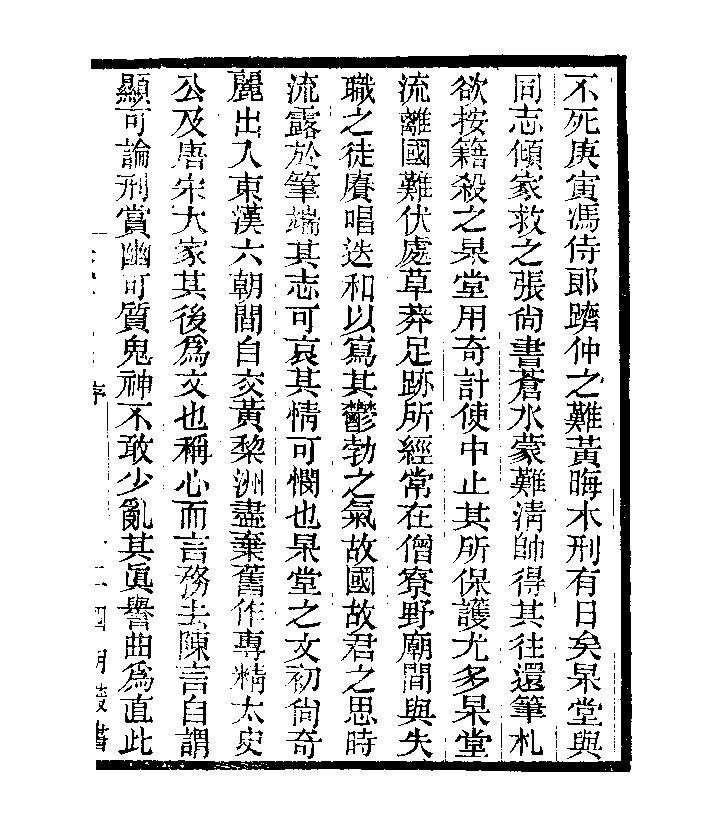 不死庚寅馮侍郎躋仲之難黃晦木刑有日矣杲堂與
同志傾家救之張尙書蒼水蒙難淸帥得其往還筆札
欲按籍殺之杲堂用奇計使中止其所保護尤多杲堂
流離國難伏處草莽足跡所經常在僧寮野廟間與失
職之徒賡唱迭和以寫其鬱勃之氣故國故君之思時
流露於筆端其志可哀其情可憫也杲堂之文初尙奇
麗出入東漢六朝間自交黃棃洲盡棄舊作專精太史
公及唐宋大家其後爲文也稱心而言務去陳言自謂
顯可論刑賞幽可質鬼神不敢少亂其眞譽曲爲直此
序 二 四明叢書